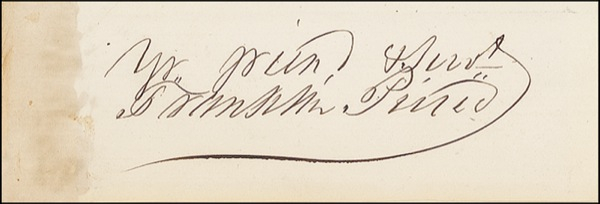 Yr. friend & Servt
Franklin Pierce